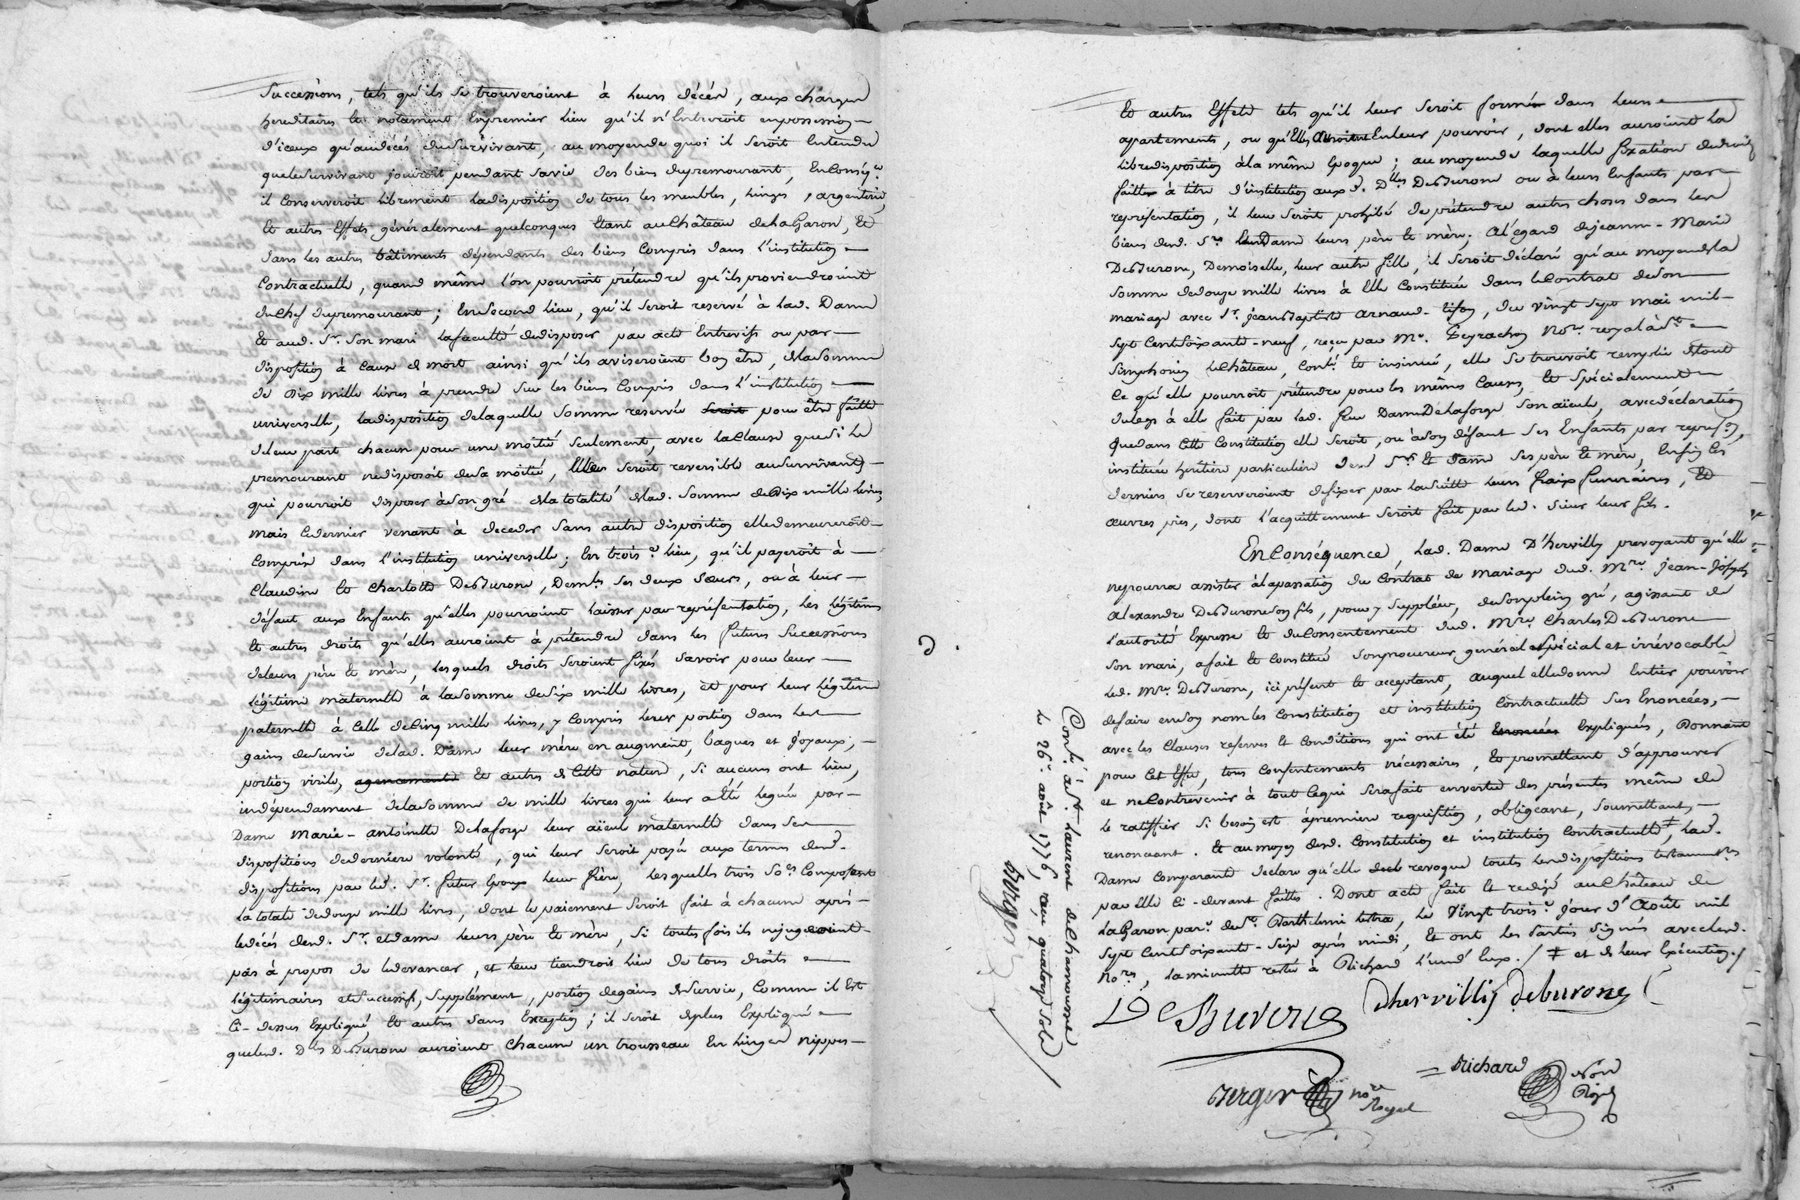 Successions, tels qu'ils se trouveroient à leurs décés, aux charges
hereditaires et notament en premier lieu qu'il n'entreroit en possession
d'iceux qu'au décés du survivant, au moyen de quoi il seroit entendu
que le survivant jouiroit pendant sa vie des biens du premourant, en conséq.ce
il conserveroit librement la disposition de tous les meubles, linges, argenterie,
et autres effets généralement quelconques étant au Château de la Garon, et
dans les autres bâtiments dépendants des biens compris dans l'institution
contractuelle, quand même l'on pourroit prétendre qu'ils proviendroient
du chef du premourant; en second lieu, qu'il seroit reservé à lad. Dame
et aud. Sr. son mari la faculté de disposer par acte entrevifs ou par
disposition à cause de mort ainsi qu'ils aviseroient bon être, de la somme
de dix mille livres à prendre sur les biens compris dans l'institution
universelle, la disposition de laquelle somme reservée pour être faitte
de leur part chacun pour une moitié seulement, avec la clause que si le
premourant ne disposoit de sa moitié, elle seroit reversible au survivant
qui pourroit disposer à son gré de la totalité de lad. somme de dix mille livres,
mais ce dernier venant à deceder sans autre disposition elle demeureroit
compris dans l'institution universelle; en trois.e lieu, qu'il payeroit à
Claudine et Charlotte DeBurone, Demlles ses deux sœurs, ou à leur
défaut aux enfants qu'elles pourroient laisser par représentation, les légitimes
et autres droits qu'elles auroient à prétendre dans les futures successions
de leurs père et mère, lesquels droits seroient fixés savoir pour leur
légitime maternelle à la somme de six mille livres, et pour leur légitime
paternelle à celle de cinq mille livres, y compris leur portion dans les
gains de survie de lad. Dame leur mère en augment, bagues et joyaux,
portion virile, et autres de cette nature, si aucuns ont lieu,
indépendament de la somme de mille livres qui leur a été leguée par
Dame Marie-Antoinette Delaforge leur aïeul maternelle dans ses
dispositions de derniere volonté, qui leur seroit payée aux termes desd.
dispositions par led. Sr. futur époux leur frère, lesquelles trois so.es composent
la totale de douze mille livres, dont le paiement seroit fait à chacune après
le décés desd. Sr. et dame leurs père et mère, si toutes fois ils ne jugeoient
pas à propos de le devancer, et leur tiendroit lieu de tous droits
légitimaires et successifs, supplément, portion de gains de survie, comme il est
ci-dessus expliqué et autres sans exception; il seroit de plus expliqué
que lesd. Dlles DeBurone auroient chacune un trousseau en linges nippes
et autres effets tels qu'il leur seroit formé dans leurs
apartements, ou qu'elles auroient en leur pouvoir, dont elles auroient la
libre disposition à la même époque; au moyen de laquelle fixation de droits
faitte à titre d'institution aux d. Dlles DeBurone ou à leurs enfants par
représentation, il leur seroit prohibé de prétendre autres choses dans les
biens desd. Srs. et Dame leurs père et mère; à l'égard de jeanne-Marie
DeBurone, Demoiselle, leur autre fille, il seroit déclaré qu'au moyen de la
somme de douze mille livres à elle constituée dans le contrat de son
mariage avec Sr. jean Baptiste Arnaud-Tison, du vingt sept mai mil
sept cent soixante-neuf, reçu par Me. Peyrachon Nore. royal à St.
Simphorien le Château, contlé. et insinué, elle se trouvoit remplie de tout
ce qu'elle pourroit prétendre pour les mêmes causes, et spécialement
du legs à elle fait par lad. feue Dame Delaforge son aïeule, avec déclaration
que dans cette constitution elle seroit, ou à son défaut ses enfants par représ.on,
instituée héritiere particulière desd. Srs. et Dame ses père et mère, enfin les
derniers se reserveroient de fixer par la suitte leurs fraix funéraires, et
œuvres pies, dont l'acquittement seroit fait par led. sieur leur fils.
En Conséquence, lad. Dame D'hervilly prevoyant qu'elle
ne pourra assister à la passation du contrat de mariage dud. Mre. Jean-Joseph
Alexandre DeBurone son fils, pour y suppléer, de son plein gré, agissant de
l'autorité expresse et du consentement dud. Mre. Charles DeBurone
son mari, a fait et constitué son procureur général et spécial et irrévocable
led. Mre. DeBurone, ici présent et acceptant, auquel elle donne entier pouvoir
de faire en son nom les constitution et institution contractuelle sus énoncées,
avec les clauses reserves et conditions qui ont été énoncées expliquées, donnant
pour cet effet, tous consentements nécessaires, et promettant d'approuver
et ne contrevenir à tout ce qui sera fait en vertu des présentes même de
le ratiffier si besoin est à premiere requisition, obligeant, soumettant,
renonçant. Et au moyen desd. constitution et institution contractuelle ‡, lad.
Dame comparante declare qu'elle revoque touttes les dispositions testament.res
par elle ci-devant faittes. Dont acte fait et redigé au Château de
la Garon par.e de St. Barthelemi Lestra, le vingt trois.e jour d'Août mil
sept cent soixante-seize après midi, et ont les parties signées avec lesd.
no.res, la minutte restée à Richard l'un d'eux. / ‡ et de leur exécution. /
DeBurone
dhervilly deburone
Berger nore Royal
= Richard nore Royal
Contlé. à St. Laurent de Chamousset
le 26e. août 1776, reçu quatorze sols
Berger